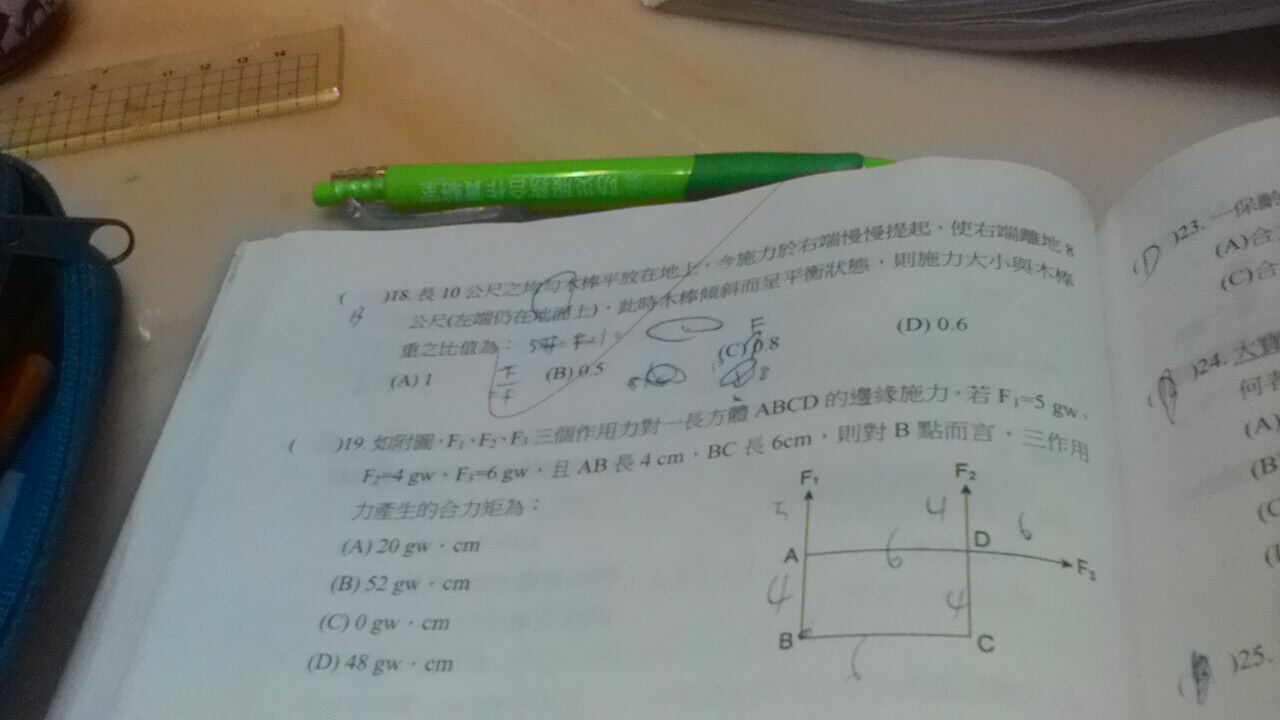 7 8 9 11 12 13 14
防災服務合作實驗室
( B )18. 長 10 公尺之均勻木棒平放在地上，今施力於右端慢慢提起，使右端離地 8
公尺(左端仍在地面上)，此時木棒傾斜而呈平衡狀態，則施力大小與木棒
重之比值為：
(A) 1 (B) 0.5 (C) 0.8 (D) 0.6
( )19. 如附圖，F₁、F₂、F₃ 三個作用力對一長方體 ABCD 的邊緣施力，若 F₁=5 gw、
F₂=4 gw、F₃=6 gw，且 AB 長 4 cm，BC 長 6cm，則對 B 點而言，三作用
力產生的合力矩為：
(A) 20 gw．cm
(B) 52 gw．cm
(C) 0 gw．cm
(D) 48 gw．cm
F₁ F₂
5 4
A 6 D 6 F₃
4 4
B C
6
(D)23. 一保
(A)合
(C)合
)24. 大寶
何者
(A)
(B)
(C
)25.